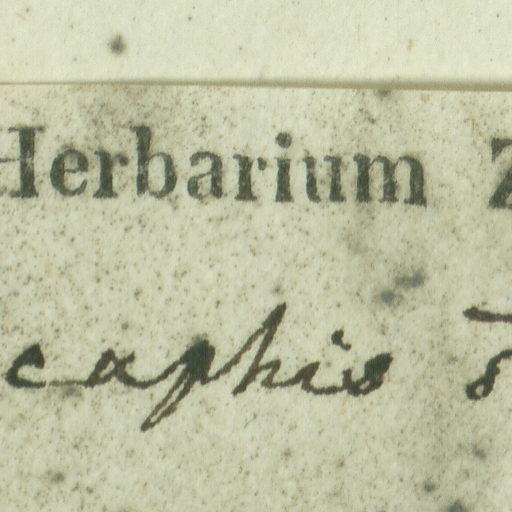 Herbarium Z
caphis